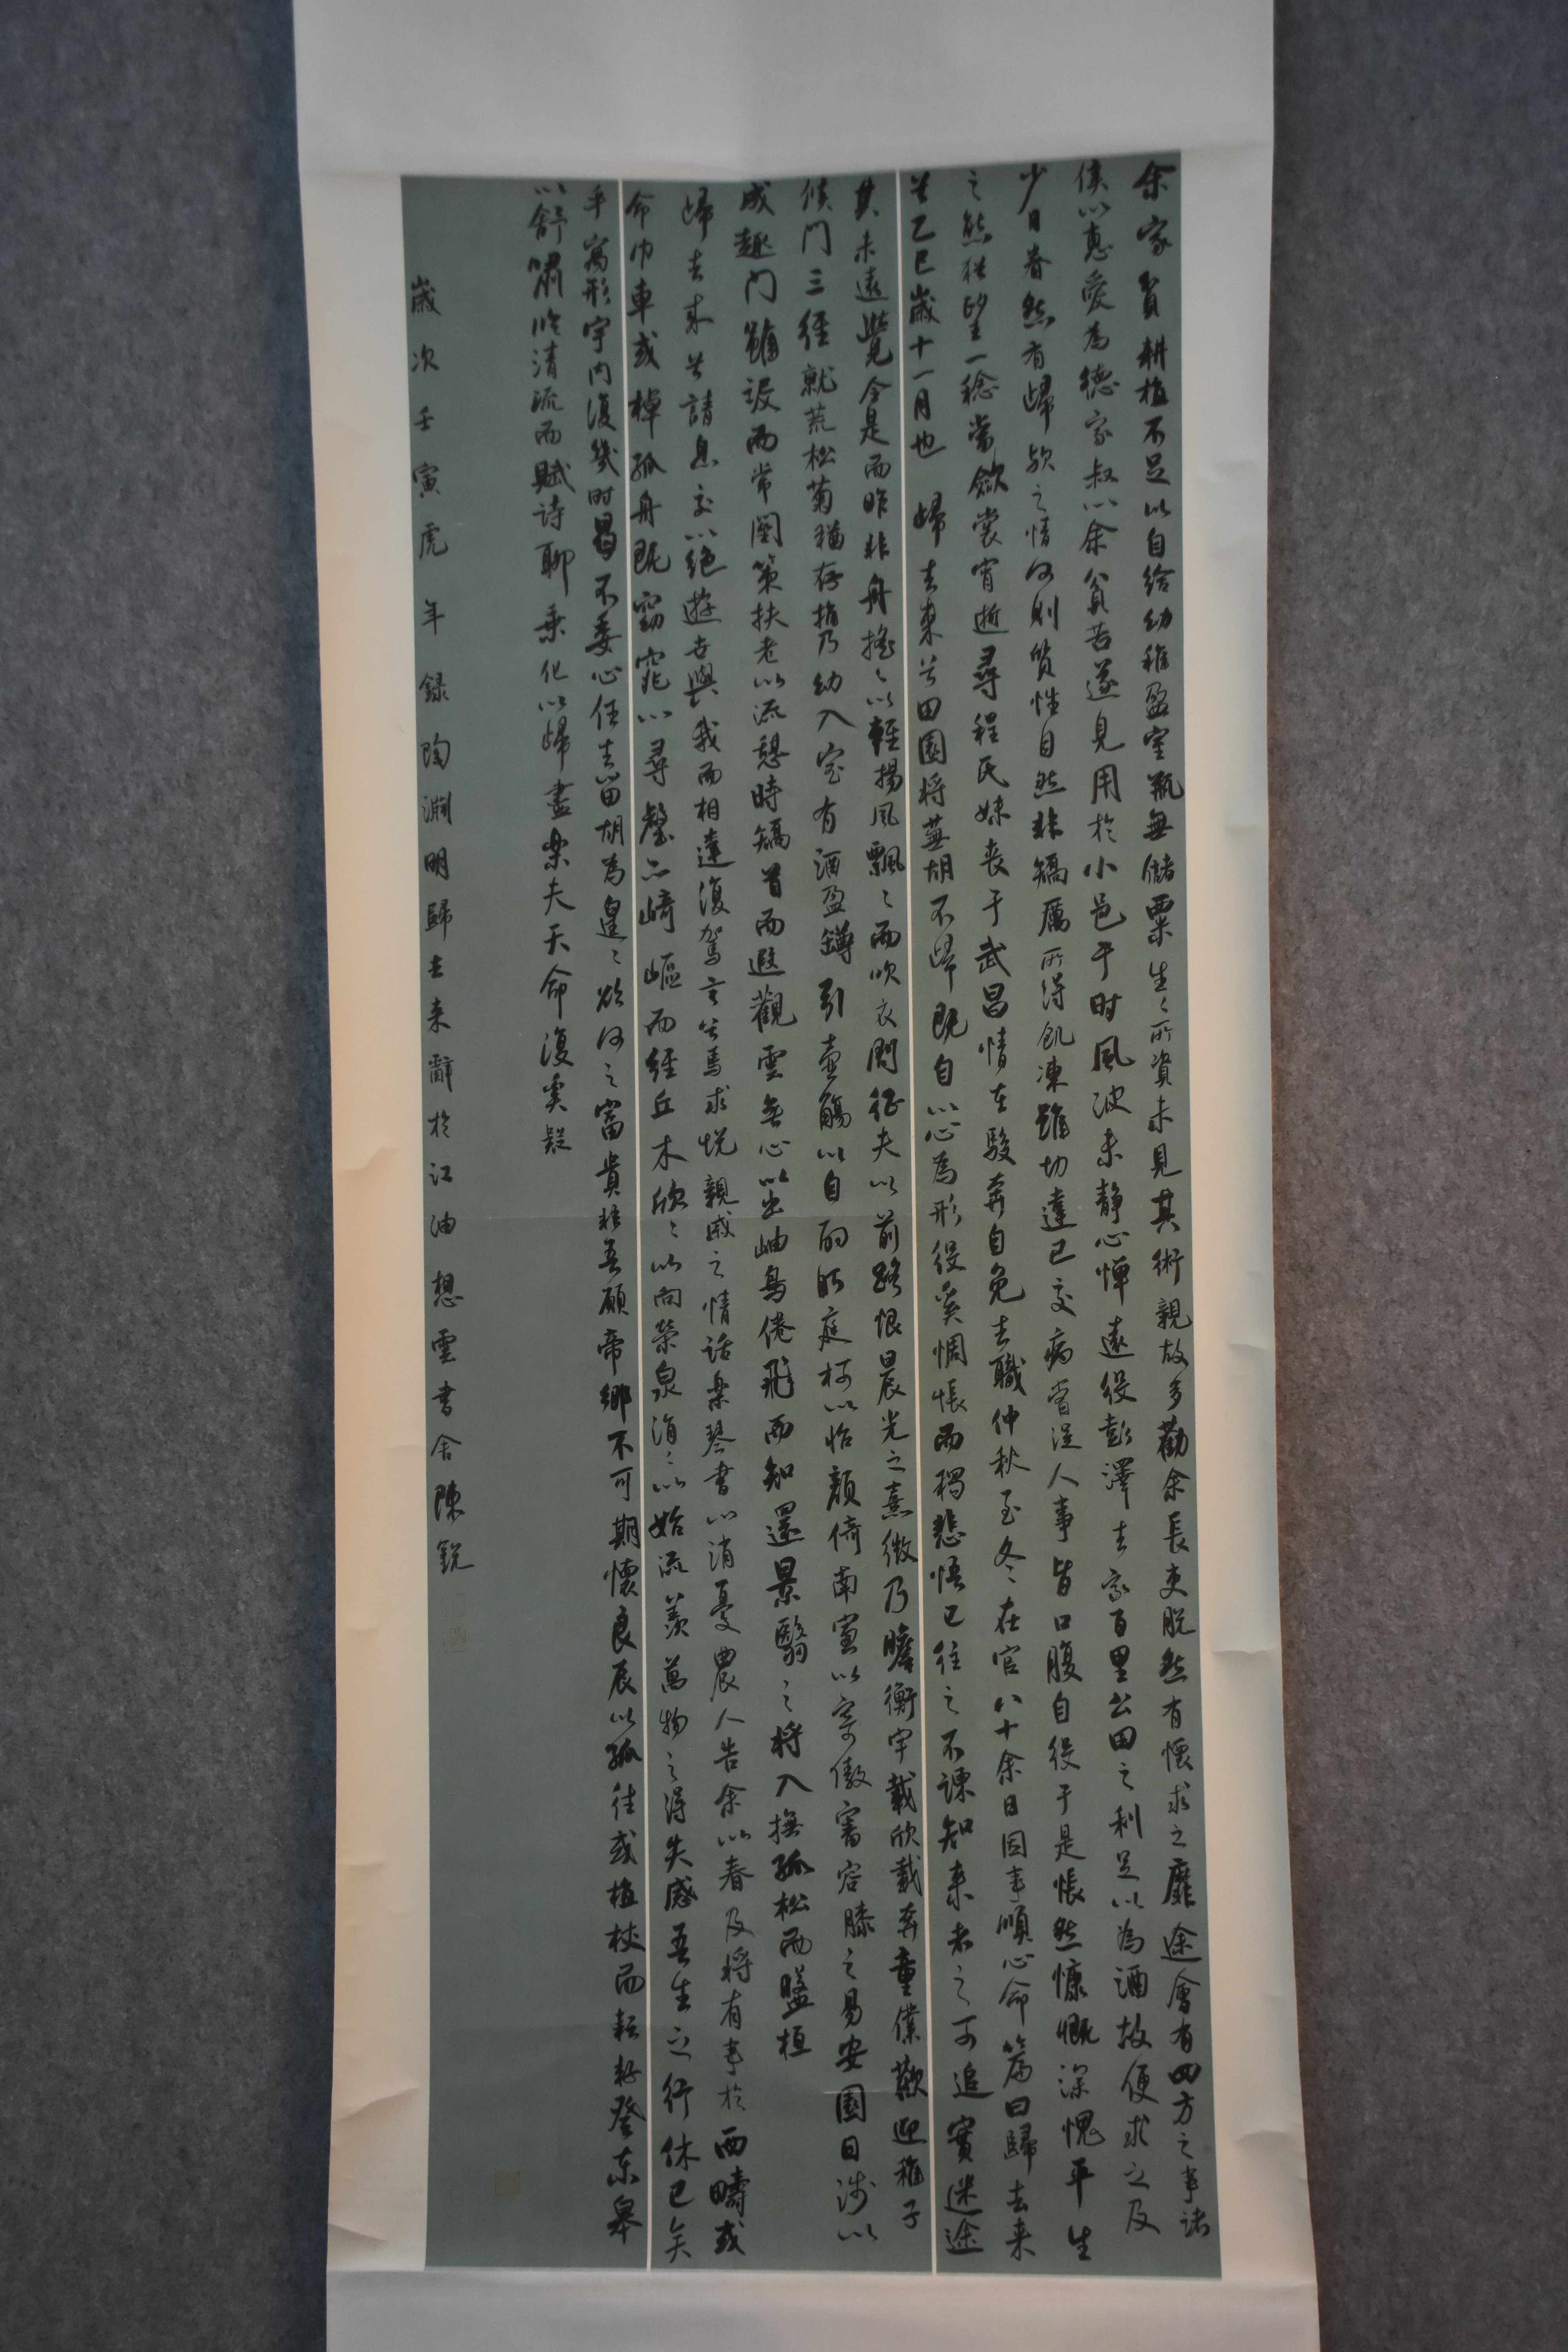 余家貧耕植不足以自給幼稚盈室瓶無儲粟生〻所資未見其術親故多勸余長吏脫然有懷求之靡途會有四方之事諸
侯以惠愛為德家叔以余貧苦遂見用於小邑于时風波未靜心憚遠役彭澤去家百里公田之利足以為酒故便求之及
少日眷然有歸歟之情何則質性自然非矯厲所得飢凍雖切違己交病嘗從人事皆口腹自役于是悵然慷慨深愧平生
之然猶望一稔當斂裳宵逝尋程氏妹丧于武昌情在駿奔自免去職仲秋至冬在官八十余日因事順心命篇曰歸去来
兮乙巳歲十一月也 歸去来兮田園将蕪胡不歸既自以心為形役奚惆悵而獨悲悟已往之不諫知来者之可追實迷途
其未遠覺今是而昨非舟搖〻以輕揚風飄〻而吹衣問征夫以前路恨晨光之熹微乃瞻衡宇載欣載奔童僕歡迎稚子
候門三徑就荒松菊猶存攜幼入室有酒盈罇引壺觴以自酌眄庭柯以怡顏倚南窗以寄傲審容膝之易安園日涉以
成趣門雖設而常關策扶老以流憩時矯首而遐觀雲無心以出岫鳥倦飛而知還景翳〻将入撫孤松而盤桓
歸去来兮請息交以絕遊世與我而相違復駕言兮焉求悅親戚之情話樂琴書以消憂農人告余以春及将有事於西疇或
命巾車或棹孤舟既窈窕以尋壑亦崎嶇而經丘木欣〻以向榮泉涓〻以始流羨萬物之得失感吾生之行休已矣
乎寓形宇内復幾时曷不委心任去留胡為遑〻欲何之富貴非吾願帝鄉不可期懷良辰以孤往或植杖而耘耔登東皋
以舒嘯臨清流而賦诗聊乘化以歸盡樂夫天命復奚疑
歲次壬寅虎年錄陶淵明歸去来辭於江油想雲书舍陳銳